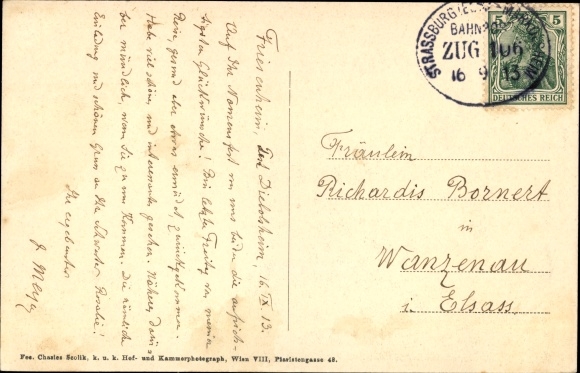 Friesenheim, Post Diebolsheim, 16.IX.13.
Auf Ihr Namensfest von uns beiden die aufrich-
tigsten Glückwünsche! Bin letzten Freitag von meiner
Reise, gesund aber etwas ermüdet, zurückgekommen.
Habe viel schönes und interessantes gesehen. Näheres darüber
bei mündlich, wenn Sie zu uns kommen. Die nämliche
Einladung und schönen Gruss an Ihre Schwester Rosalie!
Ihr ergebenster
J. Meyer
STRASSBURG (ELS.)
BAHNPOST
ZUG 106
16 9 13
5 5
DEUTSCHES REICH
Fräulein
Richardis Bornert
in
Wanzenau
i. Elsass.
Fec. Charles Scolik, k. u. k. Hof- und Kammerphotograph, Wien VIII, Piaristengasse 48.